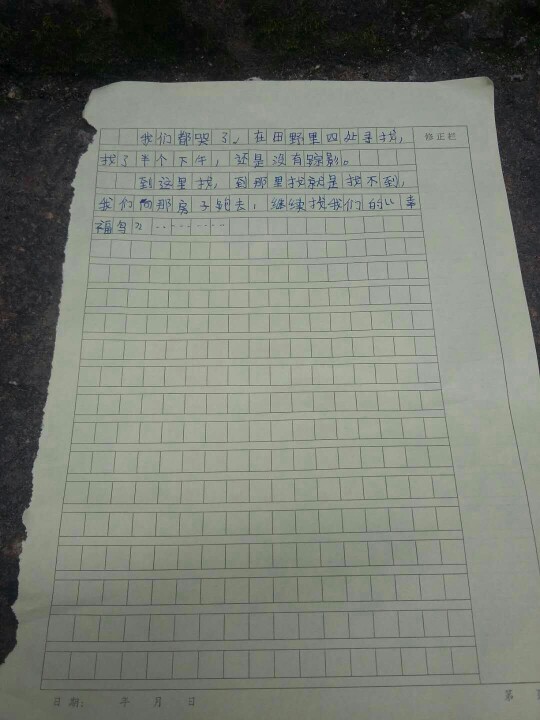 我们都哭了。在田野里四处寻找， 修正栏
找了半个下午，还是没有踪影。
到这里找，到那里找就是找不到，
我们向那房子跑去，继续找我们的“幸
福鸟”…………
日期： 年 月 日 第